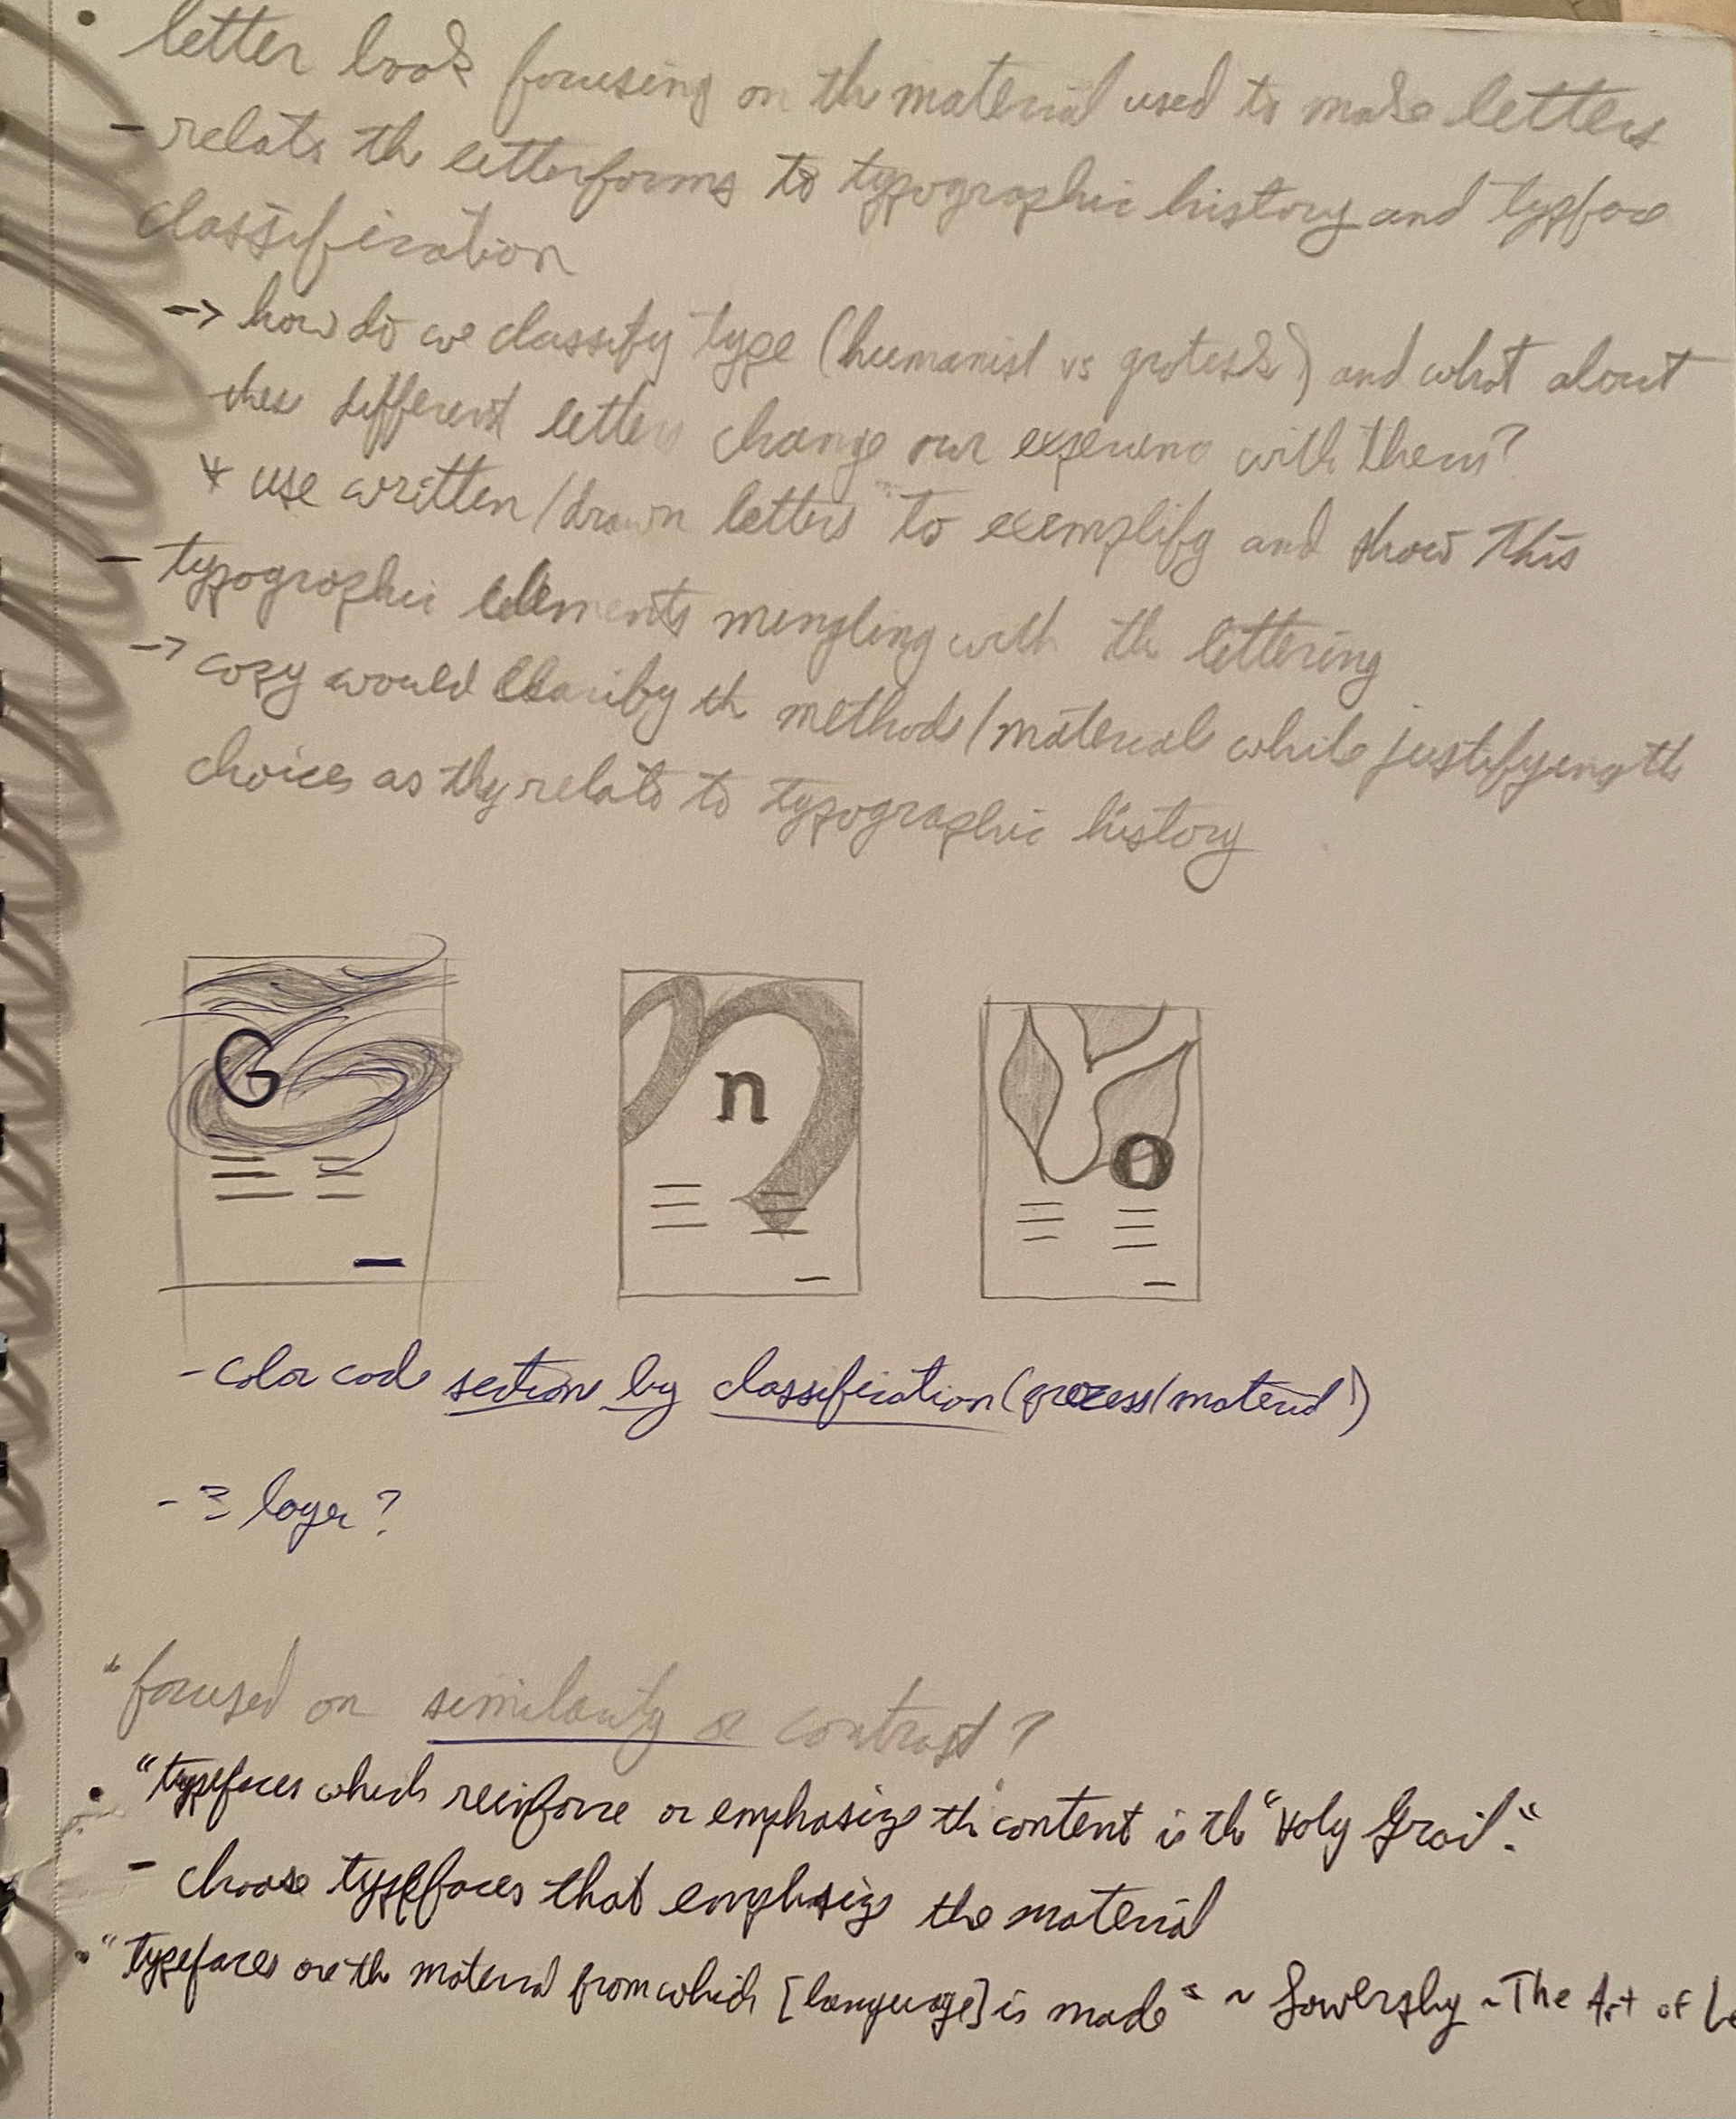 • letter book focusing on the material used to make letters
- relate the letterforms to typographic history and typeface
classification
-> how do we classify type (humanist vs grotesk) and what about
these different letters change our experience with them?
* use written/drawn letters to exemplify and show this
- typographic elements mingling with the lettering
-> copy would clarify the method/material while justifying the
choices as they relate to typographic history
G
n
o
- color code sections by classification (process/material)
- layer?
* focused on similarity or contrast?
• "typefaces which reinforce or emphasize the content is the "Holy Grail."
- choose typefaces that emphasize the material
• "typefaces are the material from which [language] is made" ~ Sowersby ~ The Art of Le